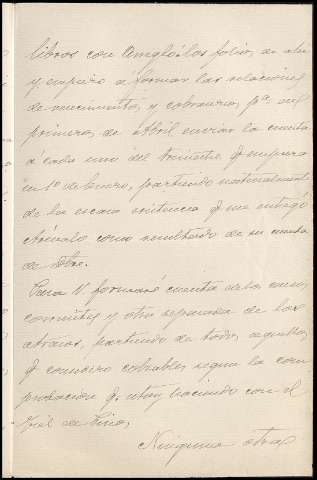 libros con arreglo á los folios de
y empiezo á formar las relaciones
de vencimientos y cobranzas, pª. en
primeros de Abril enviar la cuenta
á cada uno del trimestre q empezó
en 1º de Enero, partiendo naturalmente
de la escasa existencia q me entregó
como resultado de su cuenta
de Dbre.
Para V. formaré cuenta de los censos
corrientes y otra separada de los
atrasos, partiendo de todos aquellos
q considero cobrables segun la com
probacion q. estoy haciendo con el
de
Ninguna otra